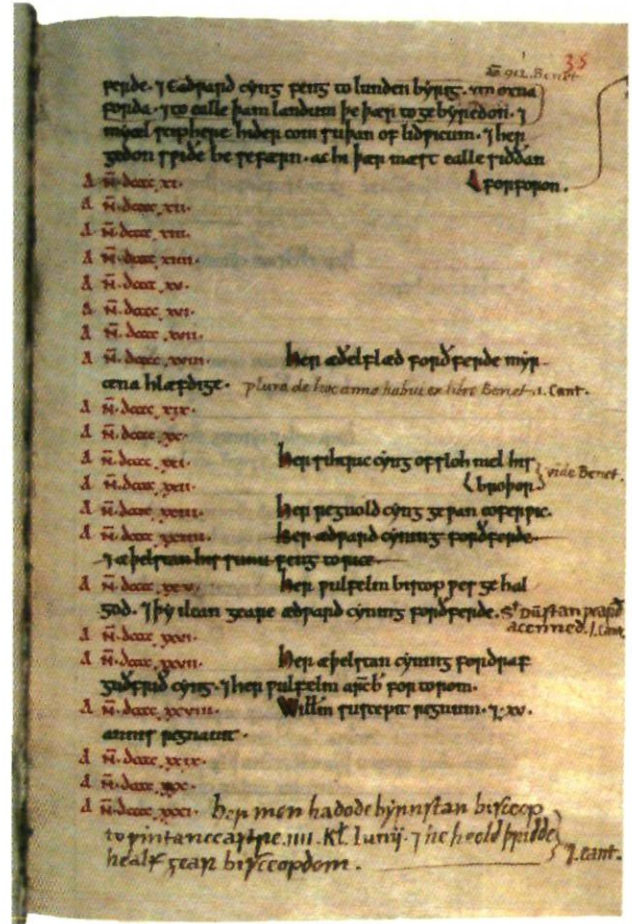 35
añ 912. Benet
ferde. ⁊ Eadƿard cyng feng to lunden byrig. ⁊ to oxna
forda. ⁊ to ealle þam landum þe þær to ge byredon. ⁊
mycel sciphere hider com suþan of lidƿicum. ⁊ her
gedon sƿide be sefærn. ac hi þær mæst ealle siððan
forforon.
A N̄. dcccc.xi.
A N̄. dcccc.xii.
A N̄. dcccc.xiii.
A N̄. dcccc.xiiii.
A N̄. dcccc.xv.
A N̄. dcccc.xvi.
A N̄. dcccc.xvii.
A N̄. dcccc.xviii. Her æðelflæd forðferde myr
cena hlæfdige. plura de hoc anno habui ex libro Benet. 1. Cant.
A N̄. dcccc.xix.
A N̄. dcccc.xx.
A N̄. dcccc.xxi. Her sihtric cyng ofsloh niel his
A N̄. dcccc.xxii. broþor vide Benet.
A N̄. dcccc.xxiii. Her regnold cyng geƿan eoferƿic.
A N̄. dcccc.xxiiii. Her ædƿard cyning forðferde.
⁊ æþelstan his sunu feng to rice.
A N̄. dcccc.xxv. Her ƿulfelm biscop ƿes ge hal
god. ⁊ þy ilcan geare ædƿard cyning forðferde. St Dūstan ƿearð
acenned. 1. Cant.
A N̄. dcccc.xxvi.
A N̄. dcccc.xxvii. Her æþelstan cyning fordraf
guðfrið cyng. ⁊ her ƿulfelm arc̄b for to rom.
A N̄. dcccc.xxviii. Willm̄ suscepit regnum. ⁊ .xv.
annis regnauit.
A N̄. dcccc.xxix.
A N̄. dcccc.xxx.
A N̄. dcccc.xxxi. her men hadode byrnstan bisceop
to ƿintanceastre .iiii. Kl̄. Iunij. ⁊ he heold þridde
healf gear bisceopdom. 1. Cant.